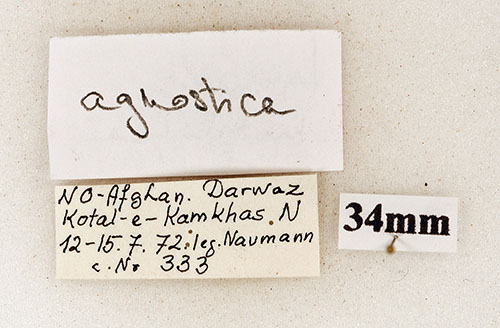 agnostica
NO-Afghan. Darwaz
Kotal-e-Kamkhas. N
12-15. 7. 72. leg. Naumann
c. No 333
34mm